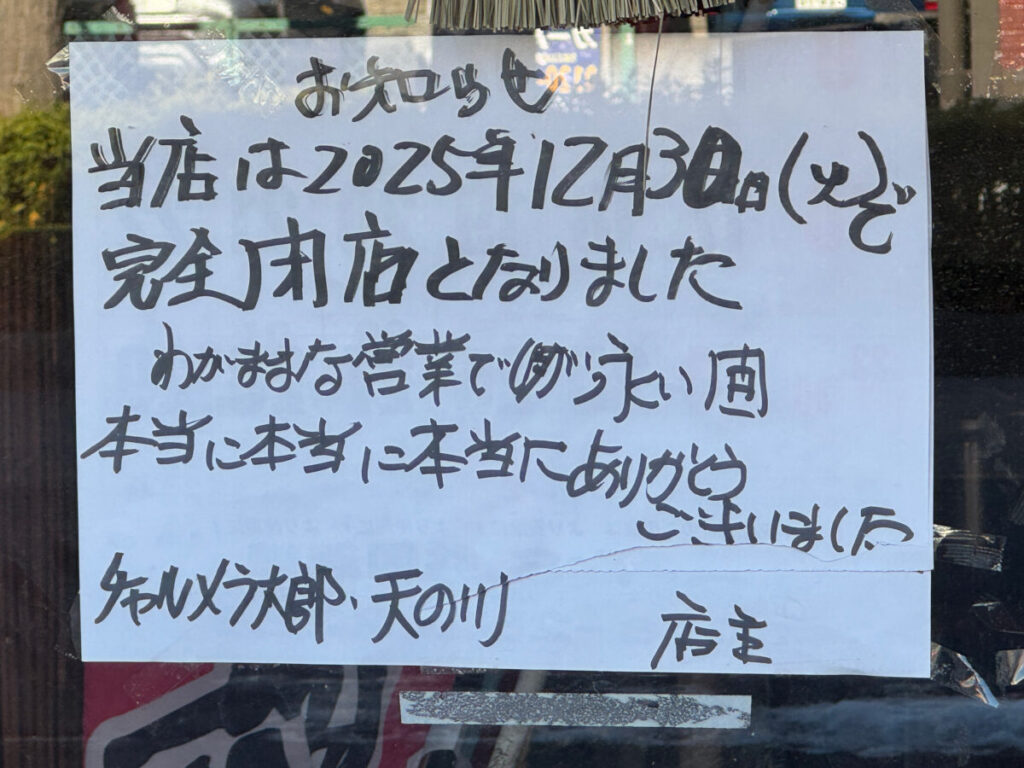 お知らせ
当店は2025年12月30日(火)で
完全閉店となりました
わがままな営業で
本当に本当に本当にありがとう
ございました
チャルメラ太郎、天の川
店主